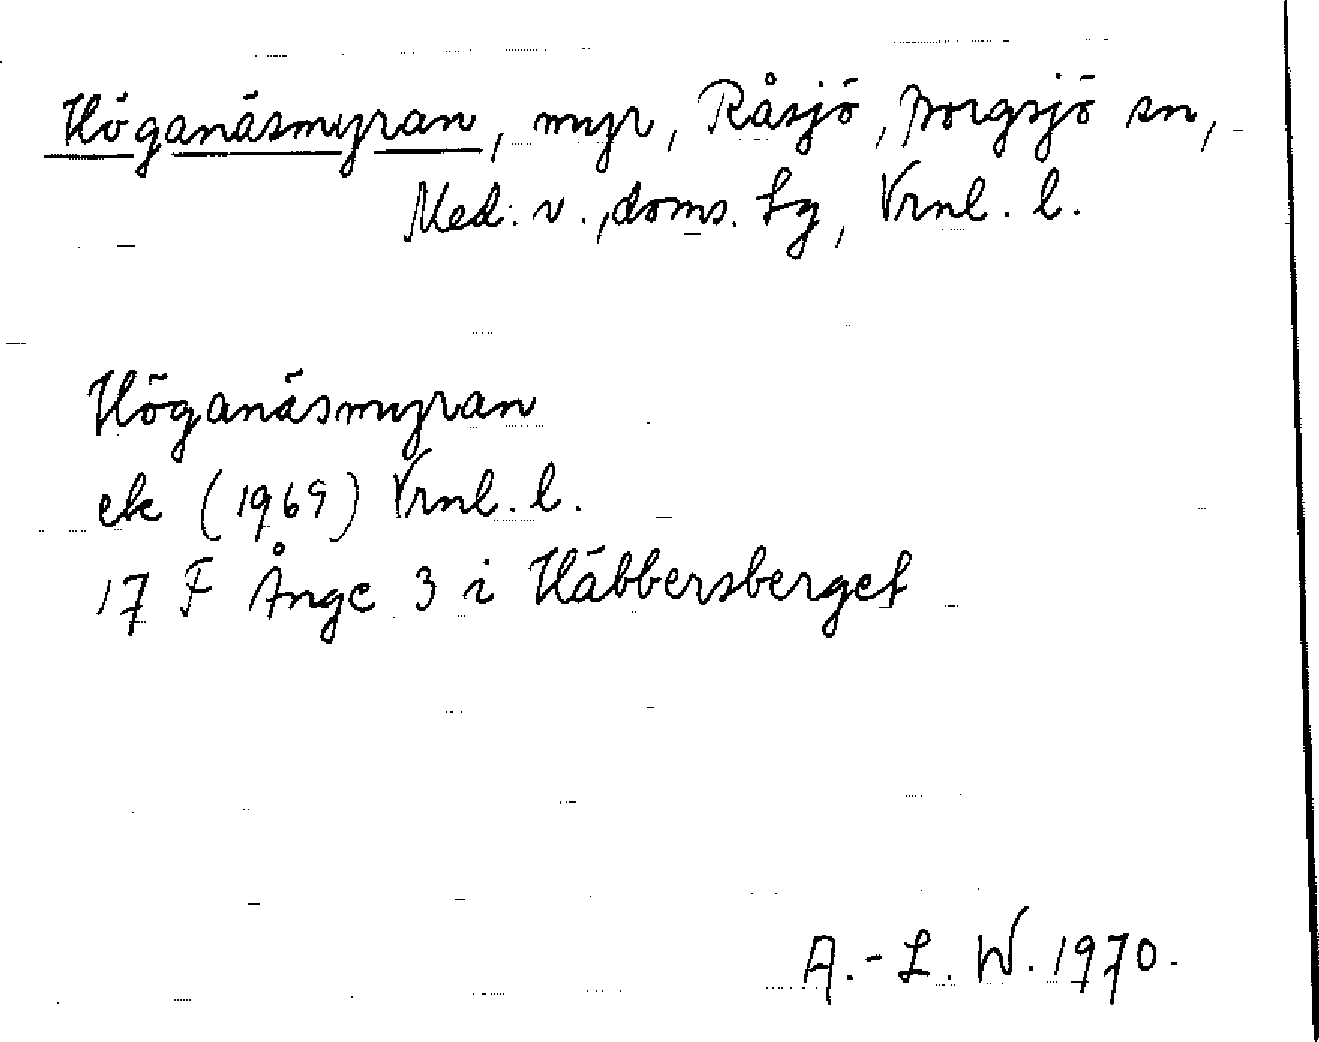 Höganäsmyran, myr, Råsjö, Borgsjö sn,
Med. v., doms. Lg, Vrnl. l.
Höganäsmyran
ek (1969) Vrnl. l.
17 F Ånge 3 i Häbbersberget
A.-L. W. 1970.